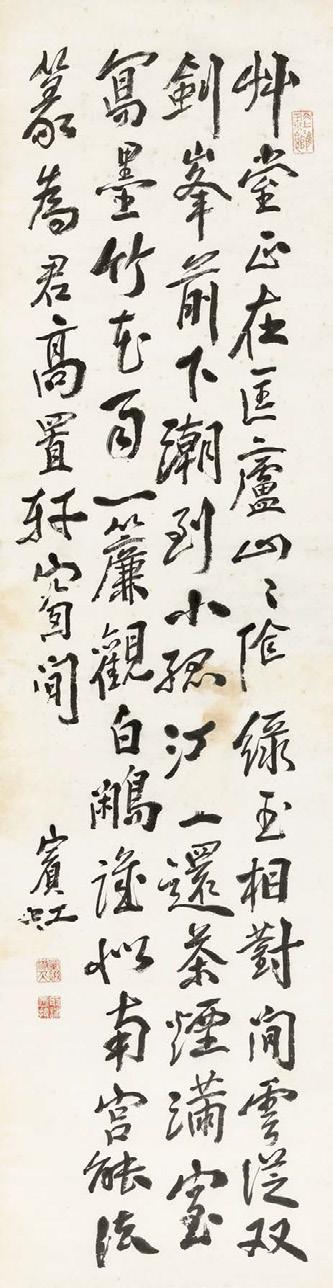 艸堂正在匡廬山〻陰綠玉相對閒雲從双
劍峯前下潮到小孤江上還茶煙滿室
寫墨竹花雨一簾觀白鷳誰似南宮能法
篆為君高置軒窗間
賓虹